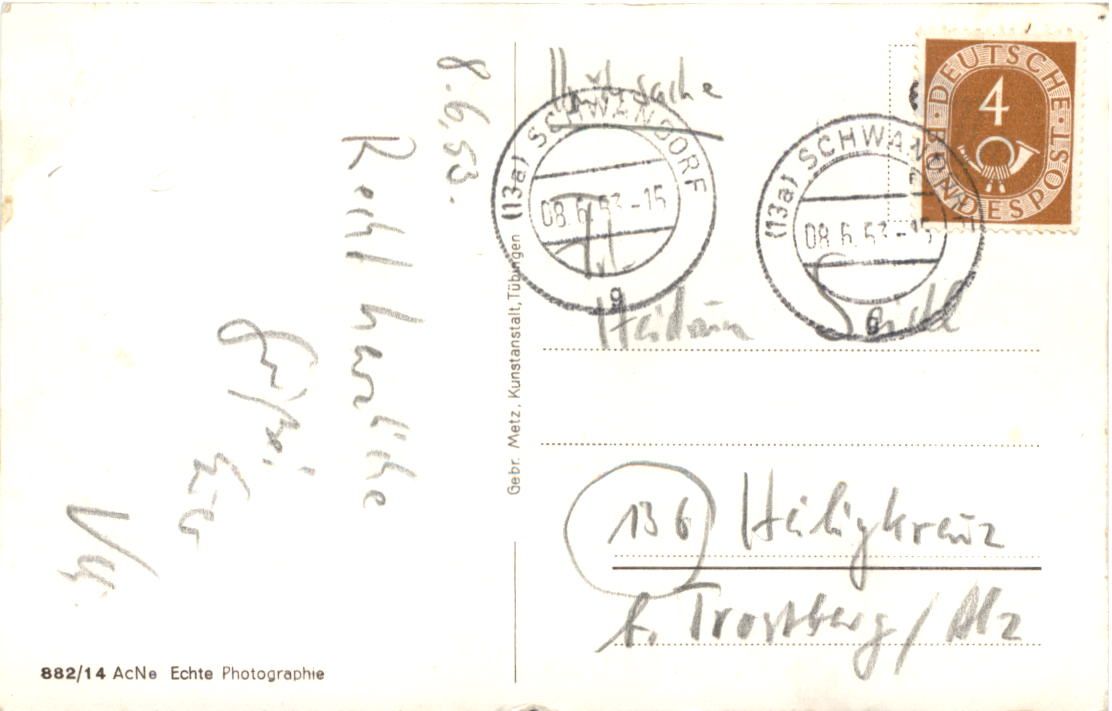 8.6.53.
Recht herzliche
Grüße
Euer
882/14 AcNe Echte Photographie
Gebr. Metz, Kunstanstalt, Tübingen
Drucksache
DEUTSCHE BUNDESPOST
4
(13a) SCHWANDORF
08.6.53-15
g
(13a) SCHWANDORF
08.6.53-15
g
Frl.
13b Heiligkreuz
b. Trostberg/Alz